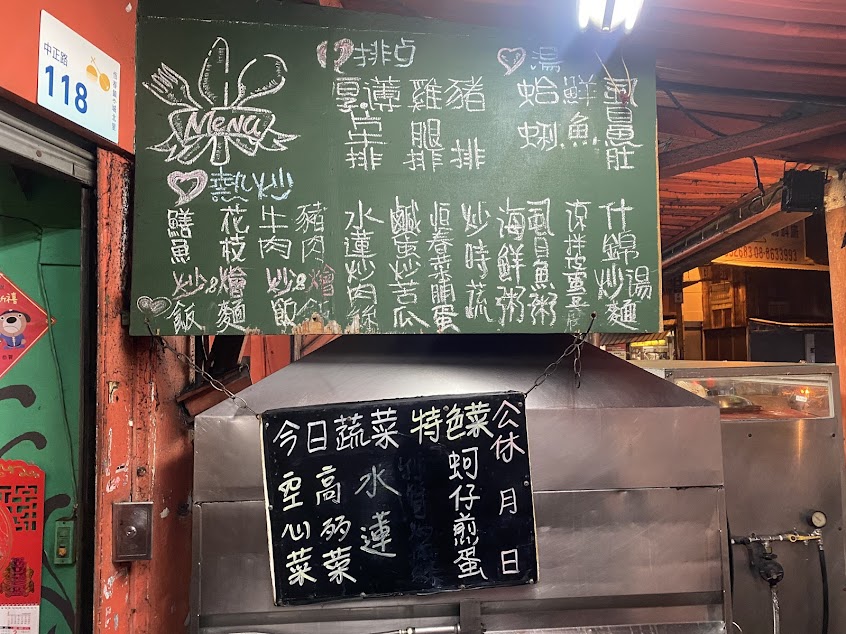 中正路
118
Menu
排点
厚薄牛排
雞腿排
豬排
湯
蛤蜊
鮮魚
虱目魚肚
熱炒
鱔魚 花枝 牛肉 豬肉
炒&燴 炒&燴
飯麵 飯
水蓮炒肉絲
鹹蛋炒苦瓜
恒春菜脯蛋
炒時蔬
海鮮粥
虱目魚粥
涼拌皮蛋豆腐
什錦炒麵
湯
今日蔬菜
空心菜
高麗菜
水蓮
特色菜
蚵仔煎蛋
公休 月 日
08-8633993